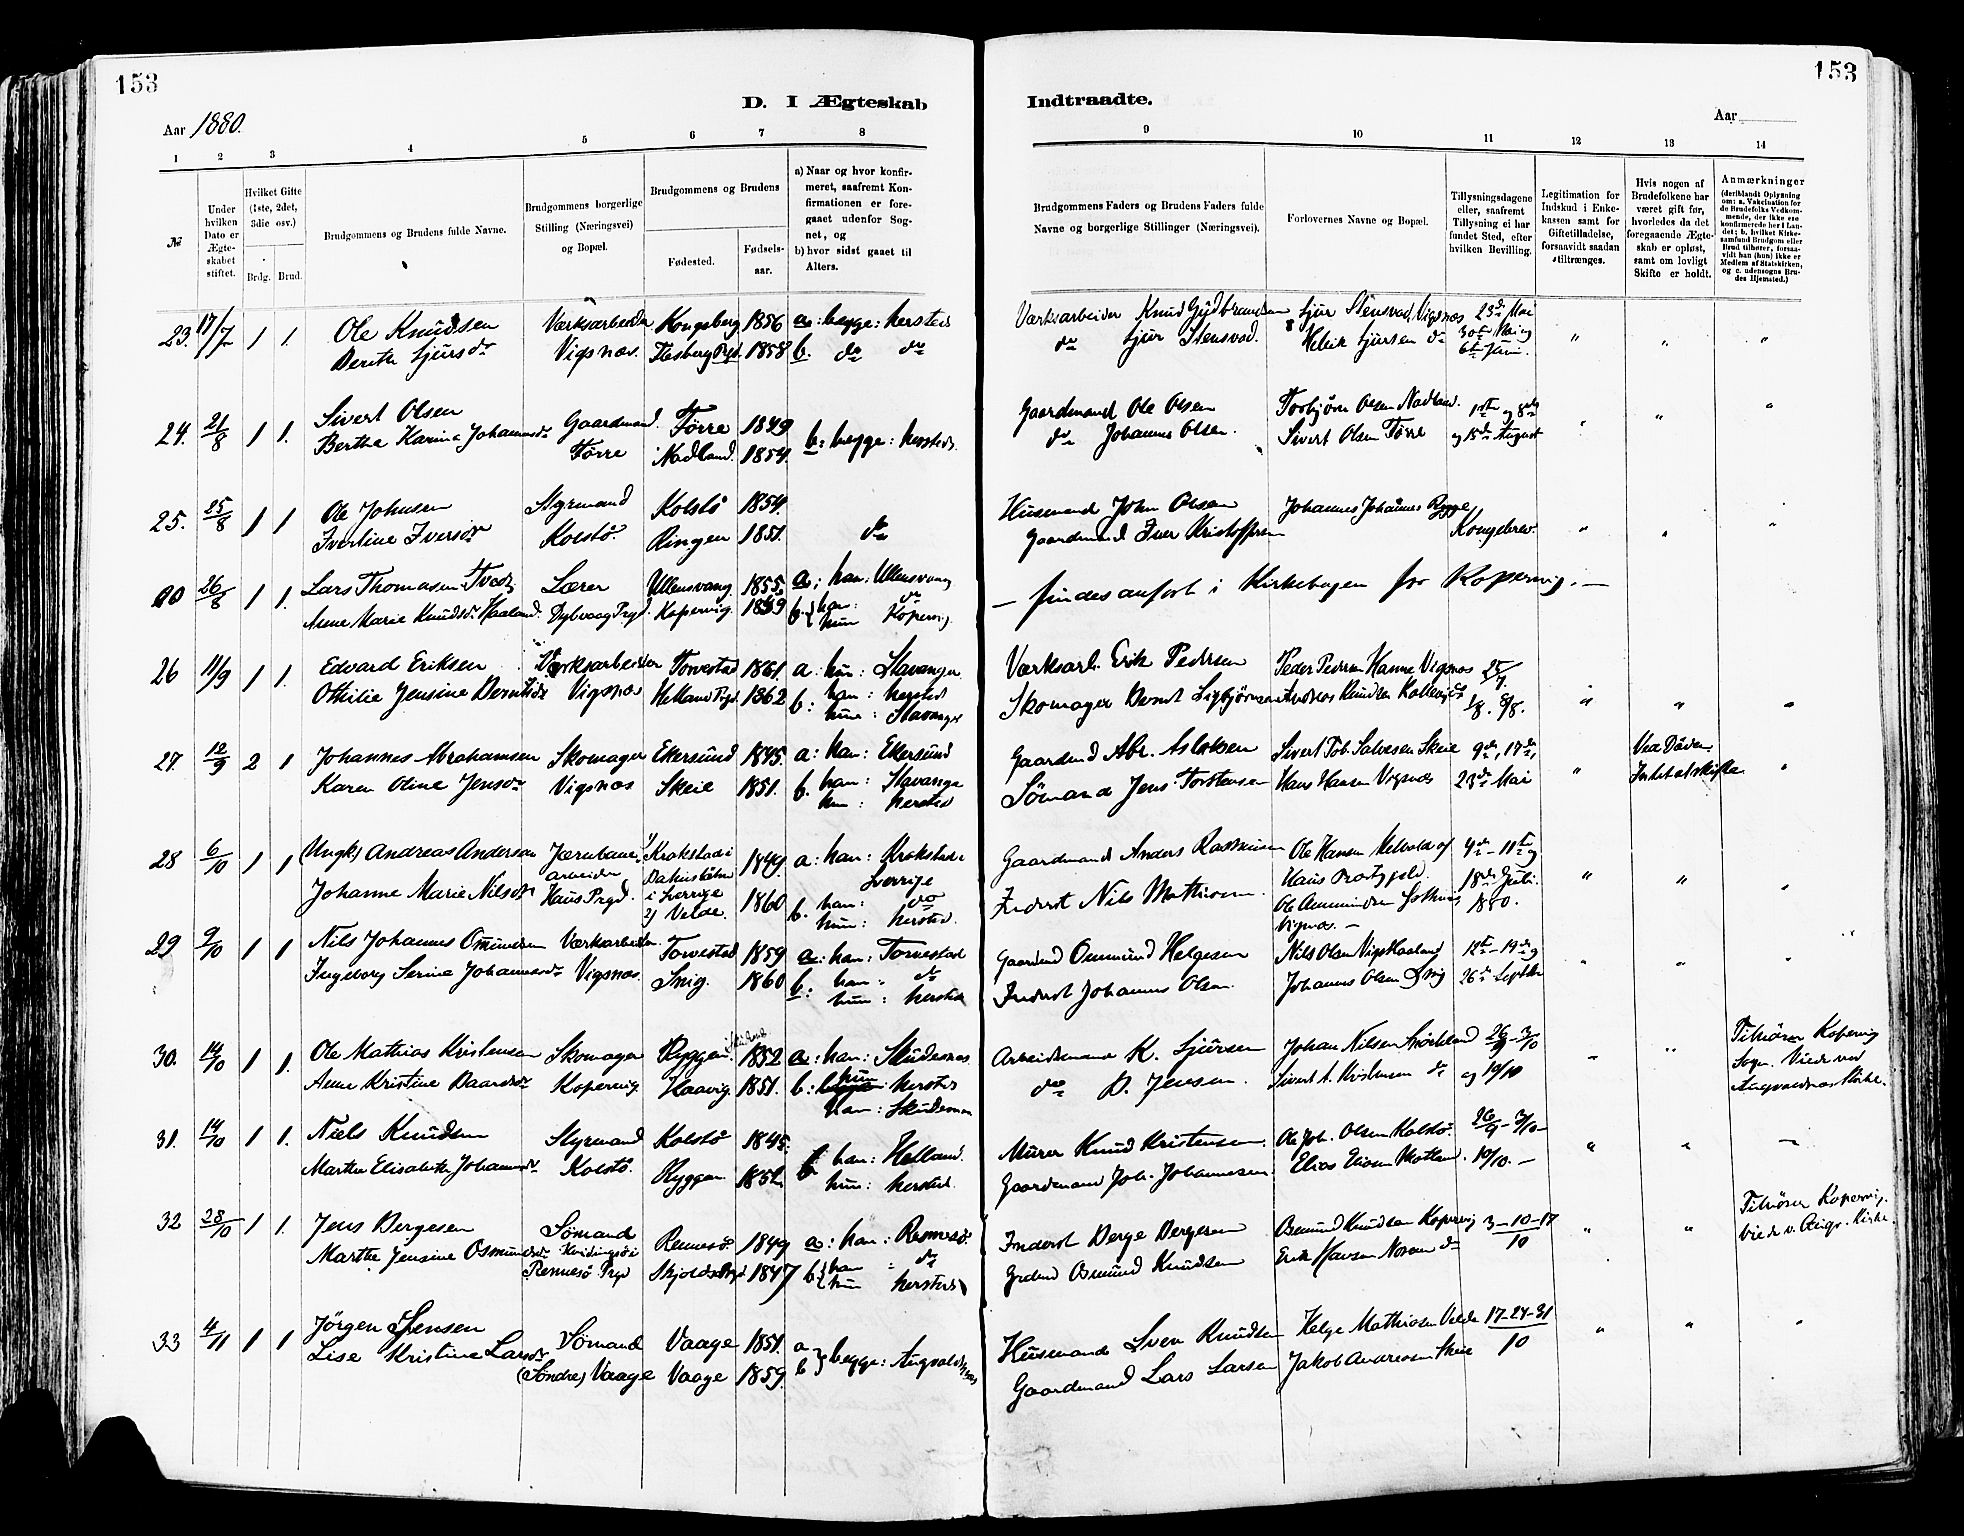 153
153
D. I Ægteskab
Indtraadte.
Aar 1880.
Aar
1 2 3 4 5 6 7 8
9 10 11 12 13 14
№
Under hvilken Dato er Ægteskabet stiftet.
Hvilket Gifte (1ste, 2det, 3die osv.)
Brdg. Brud.
Brudgommens og Brudens fulde Navne.
Brudgommens borgerlige Stilling (Næringsvei) og Bopæl.
Brudgommens og Brudens
Fødested. Fødselsaar.
a) Naar og hvor konfirmeret, saafremt Konfirmationen er foregaaet udenfor Sognet, og
b) hvor sidst gaaet til Alters.
Brudgommens Faders og Brudens Faders fulde Navne og borgerlige Stillinger (Næringsvei).
Forlovernes Navne og Bopæl.
Tillysningsdagene eller, saafremt Tillysning ei har fundet Sted, efter hvilken Bevilling.
Legitimation for Indskud i Enkekassen samt for Giftetilladelse, forsaavidt saadan tiltrænges.
Hvis nogen af Brudefolkene har været gift før, hvorledes da det foregaaende Ægteskab er opløst, samt om lovligt Skifte er holdt.
Anmærkninger
(deriblandt Oplysning om: a. Vakcination for de Brudefolks Vedkommende, der ikke ere konfirmerede her i Landet; b. hvilket Kirkesamfund Brudgom eller Brud tilhører, forsaavidt han (hun) ikke er Medlem af Statskirken, og c. udensogns Brudes Hjemsted.)
23. 17/7 1 1. Ole Knudsen Værksarbeider Kongsberg 1856 a: begge: hersteds Værksarbeider Knud Gudbrandsen Sjur Stensvad, Vigsnes 23de Mai
Berith Sjursdr Vigsnæs. Flesberg Prgd 1858 b. do do do Sjur Stensvad. Sjursen do 30te Mai og 6te Juni. " " "
24. 21/8 1 1. Sivert Olsen Gaardmand. Førre 1849 b: begge: hersteds. Gaardmand Ole Olsen Torbjørn Olsen Nadland. 1ste og 8de " " "
Berthe Karine Johannesdr Førre Nadland. 1854. do Johannes Olsen. Sivert Olsen Førre og 15de August
25. 25/8 1 1 Ole Johnsen Styrmand Kolstø 1854. Husmand John Olsen Johannes Johannes Rygge
Iverine Iversdr Kolstø Ringen 1851. do Gaardmand Iver Kristoffersen Kongebrev. " " "
26/8 1 1. Lars Thomasen Lærer Ullensvang. 1855. a: han: Ullensvang — findes anført i Kirkebogen for Kopervig. —
Anne Marie Knudsdr Haaland. Prgd. Kopervig. 1859 b. han: do
hun Kopervig
26 11/9 1 1. Edvard Eriksen Værksarbeider Torvestad 1861. a: hun: Stavanger Værksarb. Erik Pedersen Peder Pedersen Hamne Vigsnæs 25/7.
Othilie Jensine Berntsdr Vigsnæs Helland Prgd. 1862 b: han: hersted Skomager Bernt Sigbjørnsen Andreas Knudsen 1/8. 8/8. " " "
hun: Stavanger
27. 12/9 2 1 Johannes Abrahamsen Skomager Ekersund 1845. a: han: Ekersund Gaardmd Abr. Aslaksen Sivert Tob. Salvesen Skeie 9de, 17de, Ved Døden.
Karen Oline Jensdr Vigsnæs Skeie 1851. b. han: Stavanger Sømand Jens Torstensen Hans Hansen Vigsnæs 23de Mai " Intet at skifte "
hun: hersted
28 6/10 1 1 (Ungk.) Andreas Anderson Jærnbane- 1) Krokstad i 1849. a: han: Krokstad i Gaardmand Anders Rasmusen Ole Hansen af 4de — 11te og
arbeider Bahuslähn Sverrige Haus Prestegjeld. 18de Juli
Johanne Marie Nilsdr Haus Prgd. i Sverrige 1860 b. han: do Inderst Nils Mathiesen. Ole Ommundsen 1880. " " "
2) Velde. hun: hersted. Vigsnæs. —
29 9/10 1 1 Nils Johannes Omundsen Værksarbeider. Torvestad 1859 a: han: Torvestad Gaardmd Ommund Helgesen Nils Olsen Vigs Haaland 12te — 19de og
Ingeborg Serine Johannesdr Vigsnæs. Snig. 1860 b: han: do Inderst Johannes Olsen. Johannes Olsen Snig 26de Septbr " " "
hun: hersted
30. 14/10 1 1 Ole Mathias Kristensen Skomager Ryggen. 1852. a: han: Skudesnes. Arbeidsmand K. Sjursen Johan Nilsen 26/9 3/10 " " Tilhører Kopervig
Anne Kristine Baardsdr Kopervig. Haavig. 1851. b: hun hersteds do B. Jensen. Sivert A. Kristensen do og 10/10 Sogn. Viede ved
han: Skudesnæs Augvaldnæs Kirke.
31. 14/10 1 1. Niels Knudsen Styrmand Kolstø 1845. b han: Helland. Murer Knud Kristensen. Ole Joh. Olsen Kolstø. 26/9 - 3/10 - " " "
Marthe Elisabeth Johannesdr Kolstø. Ryggen 1852. hun: hersted. Gaardmand Joh. Johannesen Elias Eliasen 10/10. —
32 28/10 1 1. Jens Bergesen Sømand Rennesø. 1849 a: han: Rennesø. Inderst Berge Bergesen Osmund Knudsen Kopervig 3-10-17 " " Tilhører Kopervig.
Marthe Jensine Osmundsdr Kvidingsø i Skjolds Prgd 1847 b han do Grdmd Osmund Knudsen Erik Hansen do 10 Viede v. Augv. Kirke.
Rennesø Prgd hun hersteds
33 4/11 1 1 Jørgen Svensen Sømand Vaage 1851. a Husmand Sven Knudsen Helge Mathiasen Velde 17-24-31 " " "
Lise Kristine Larsdr (Søndre) Vaage Vaage 1859. b begge: Augvaldsnæs Gaardmand Lars Larsen Jakob Andreasen Skeie 10